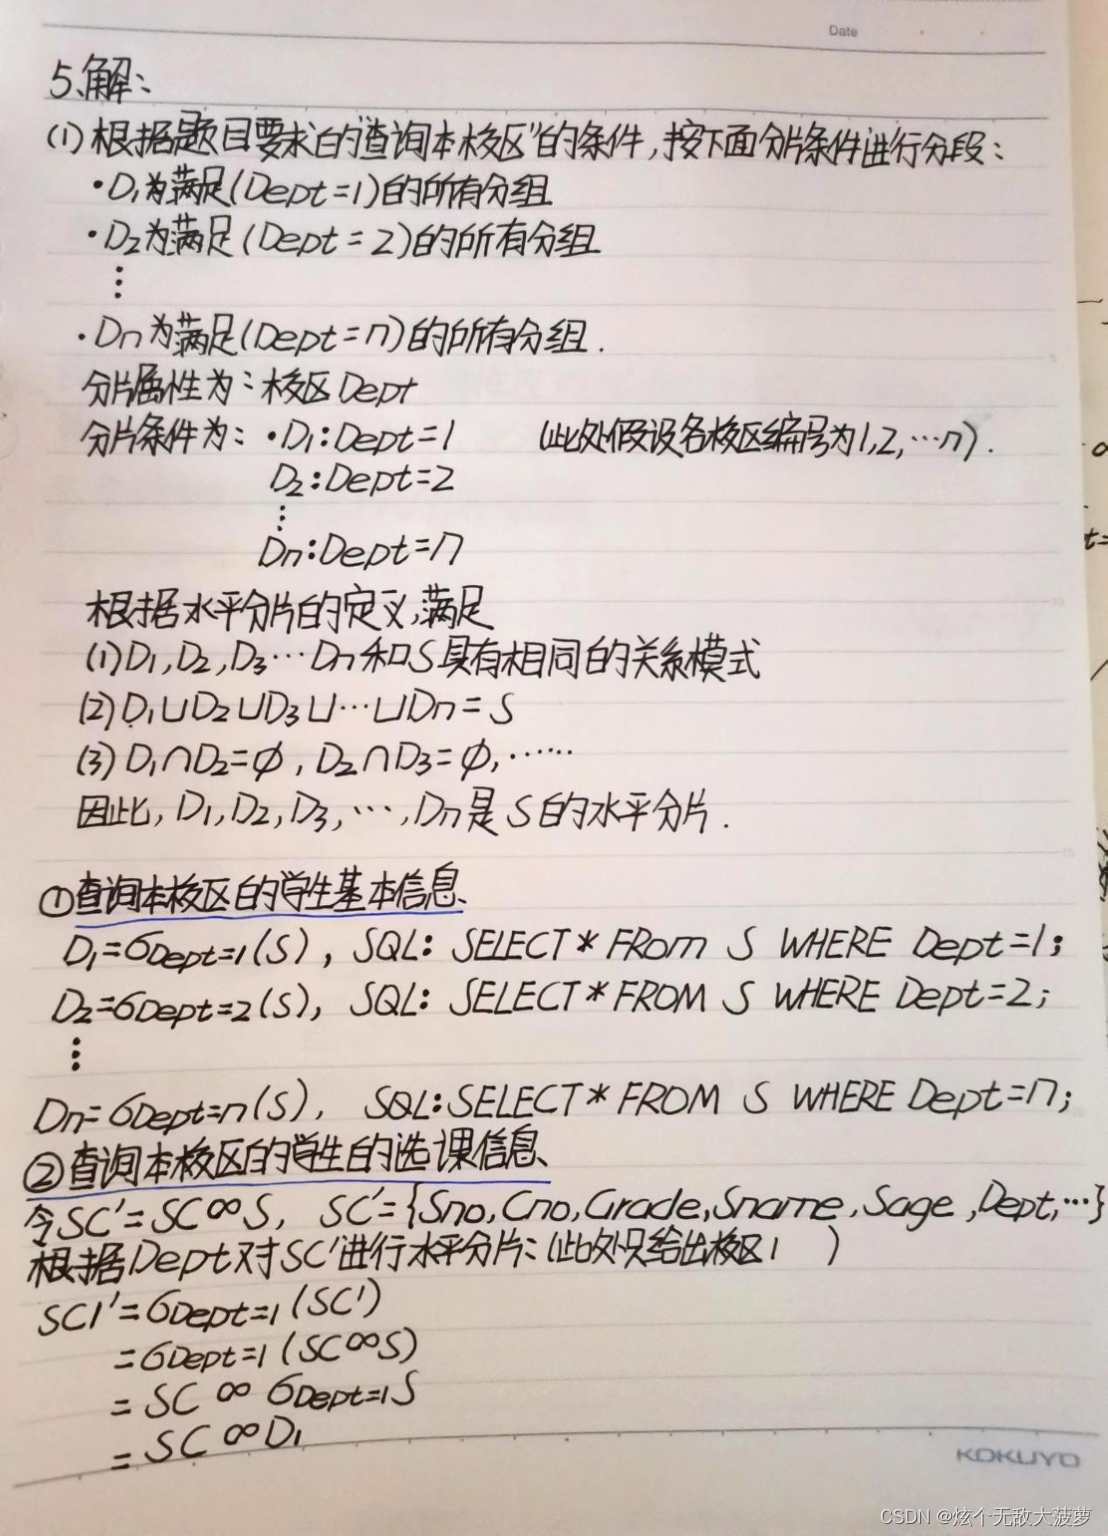 Date
5、解：
(1)根据题目要求的“查询本校区”的条件，按下面分片条件进行分段：
·D₁为满足(Dept=1)的所有分组
·D₂为满足(Dept=2)的所有分组
⋮
·Dn为满足(Dept=n)的所有分组.
分片属性为：校区Dept
分片条件为：·D₁:Dept=1 (此处假设各校区编号为1,2,…n).
D₂:Dept=2
⋮
Dn:Dept=n
根据水平分片的定义,满足
(1)D₁,D₂,D₃…Dn和S具有相同的关系模式
(2)D₁∪D₂∪D₃∪…∪Dn=S
(3)D₁∩D₂=∅,D₂∩D₃=∅,……
因此,D₁,D₂,D₃,…,Dn是S的水平分片.
①查询本校区的学生基本信息、
D₁=σDept=1(S), SQL: SELECT*FROM S WHERE Dept=1;
D₂=σDept=2(S), SQL: SELECT*FROM S WHERE Dept=2;
⋮
Dn=σDept=n(S), SQL:SELECT*FROM S WHERE Dept=n;
②查询本校区的学生的选课信息、
令SC'=SC∞S, SC'={Sno,Cno,Grade,Sname,Sage,Dept,…}
根据Dept对SC'进行水平分片:(此处只给出校区1 )
SC1'=σDept=1(SC')
=σDept=1(SC∞S)
=SC∞σDept=1S
=SC∞D₁
KOKUYO
CSDN @炫个无敌大菠萝